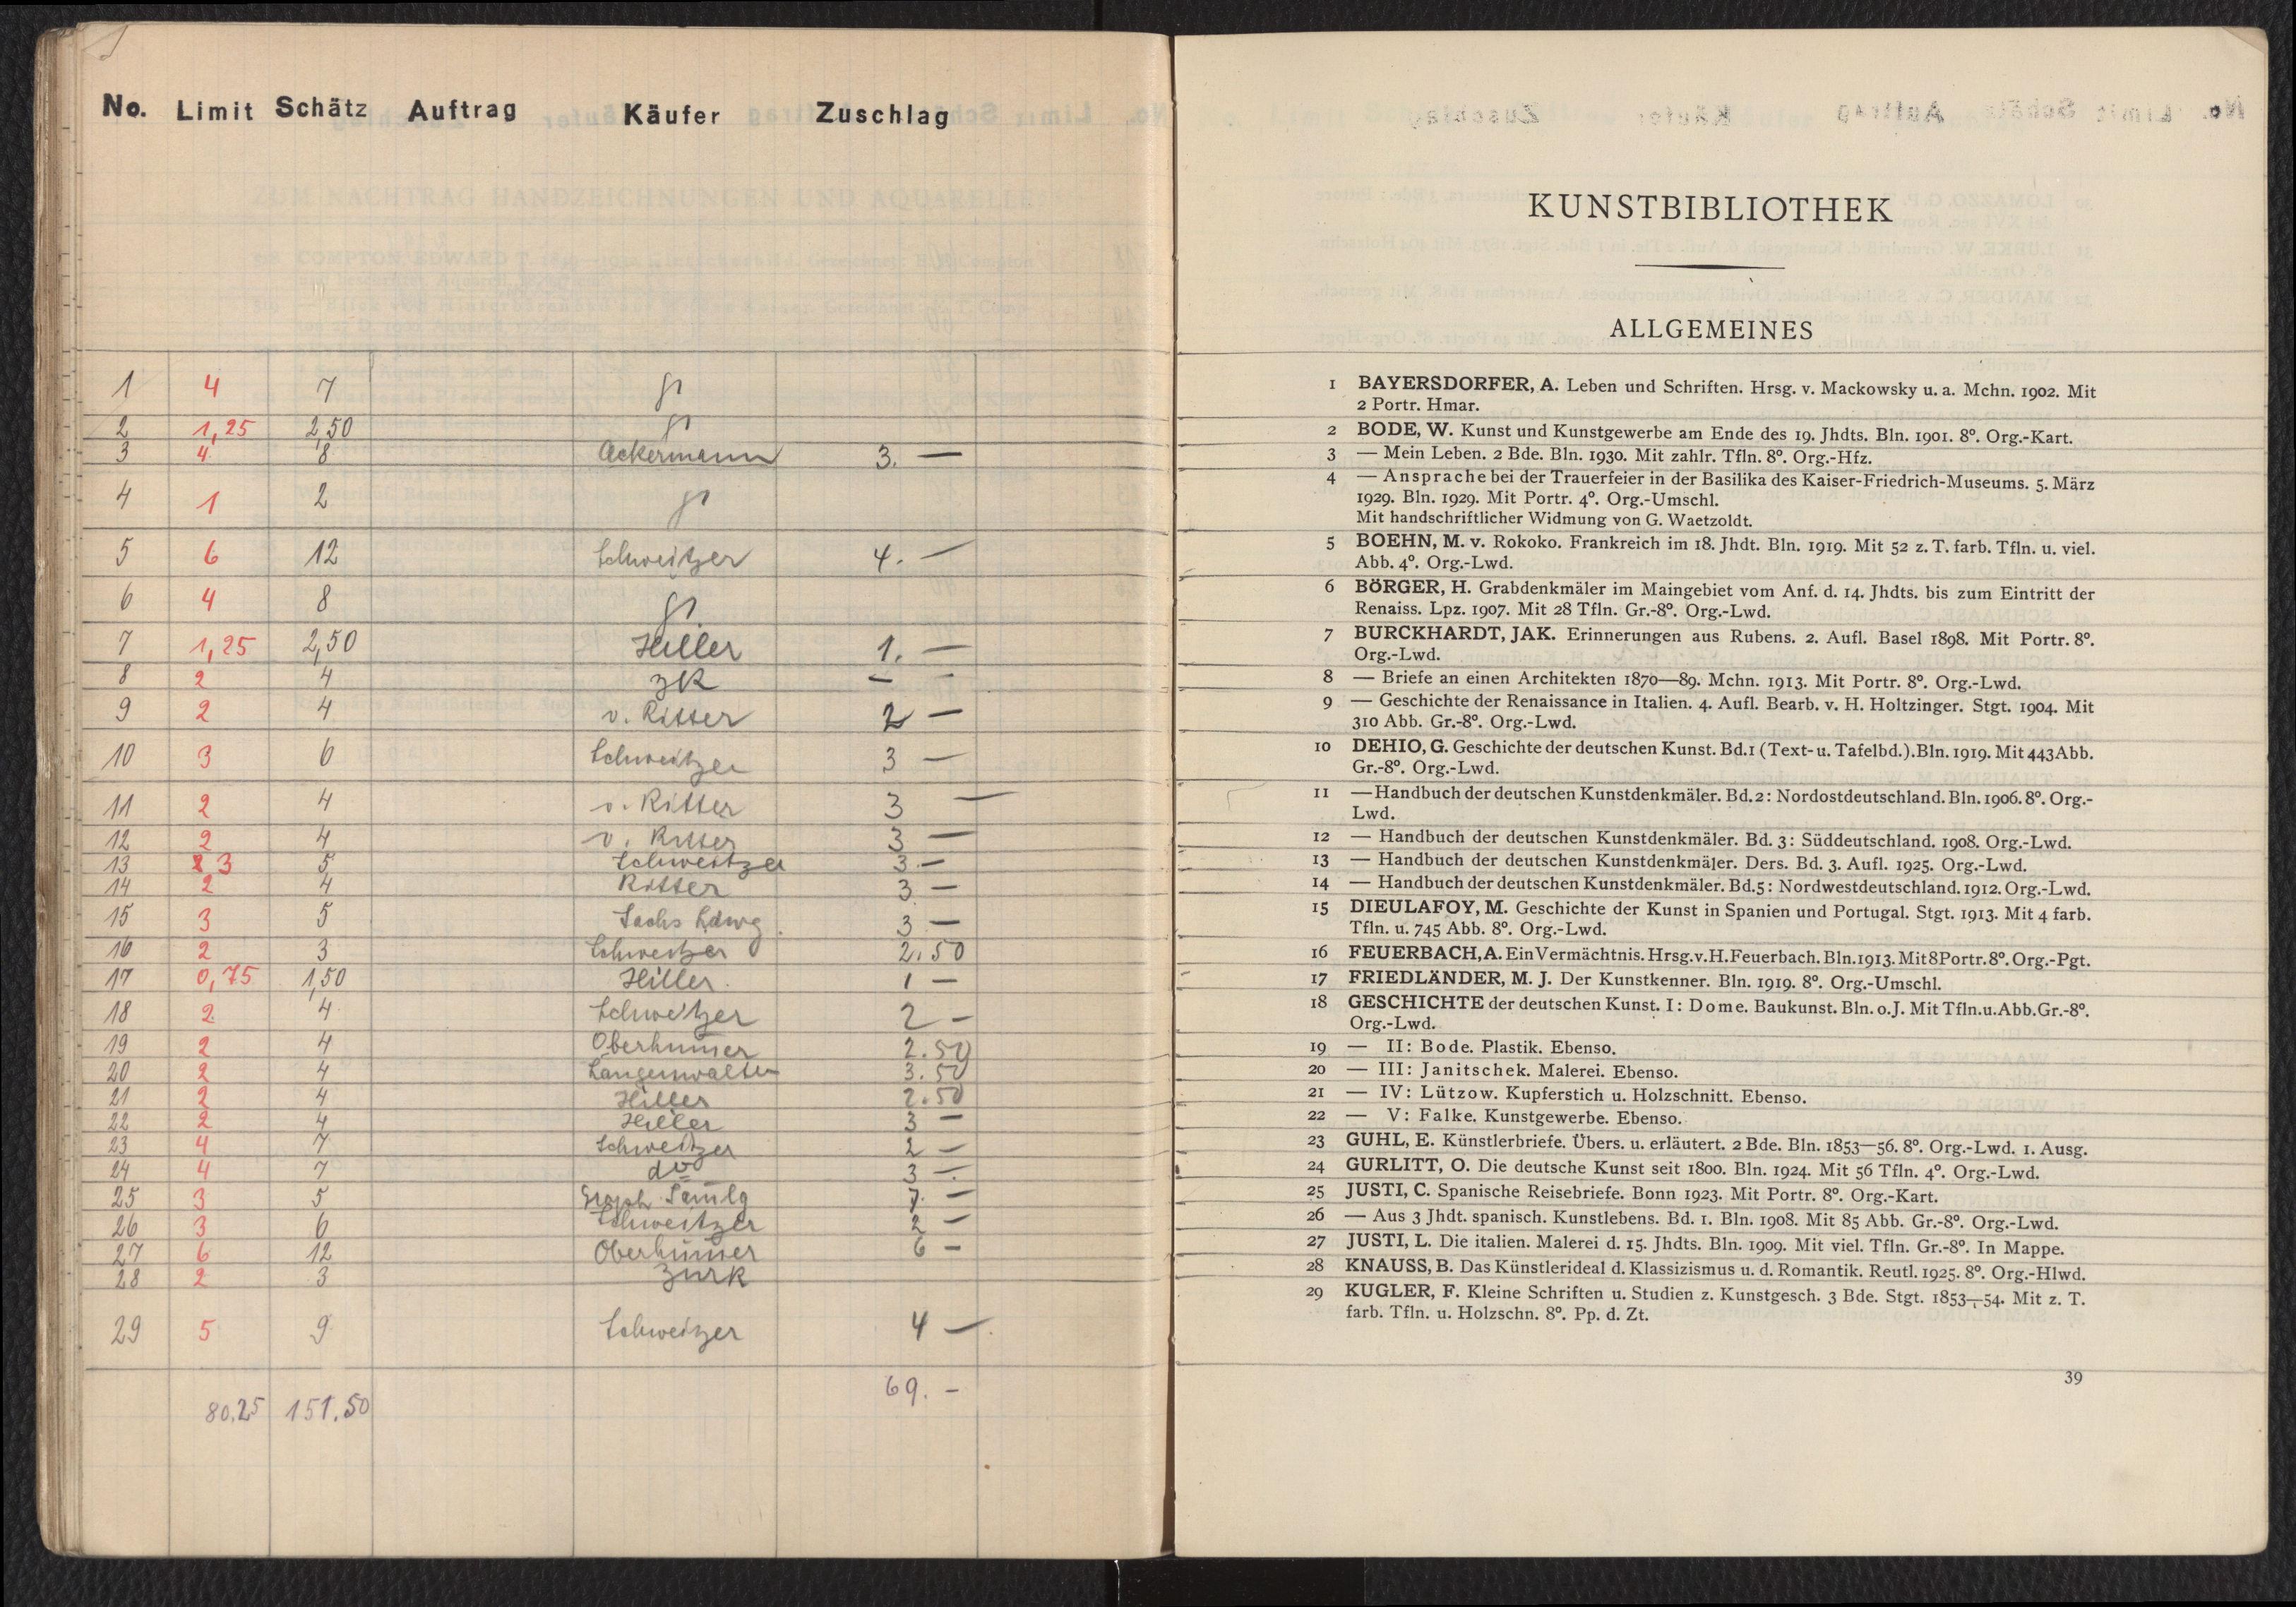 No. Limit Schätz Auftrag Käufer Zuschlag
1 4 7
2 1,25 2,50
3 4 8 Ackermann 3. —
4 1 2
5 6 12 Schweitzer 4. —
6 4 8
7 1,25 2,50 Hiller 1. —
8 2 4 zR — —
9 2 4 v. Ritter 2 —
10 3 6 Schweitzer 3 —
11 2 4 v. Ritter 3 —
12 2 4 v. Ritter 3 —
13 3 5 Schweitzer 3. —
14 2 4 Ritter 3 —
15 3 5 Sachs Ldwg. 3 —
16 2 3 Schweitzer 2.50
17 0,75 1,50 Hiller. 1 —
18 2 4 Schweitzer 2 —
19 2 4 Oberhumer 2.50
20 2 4 Langenwalter 3.50
21 2 4 Hiller 2.50
22 2 4 Hiller 3 —
23 4 7 Schweitzer 2 —
24 4 7 do 3 —
25 3 5 Graph. Samlg 7. —
26 3 6 Schweitzer 2 —
27 6 12 Oberhumer 6 —
28 2 3 zurk
29 5 9 Schweitzer 4 —
80.25 151.50 69. —
KUNSTBIBLIOTHEK
ALLGEMEINES
1 BAYERSDORFER, A. Leben und Schriften. Hrsg. v. Mackowsky u. a. Mchn. 1902. Mit
2 Portr. Hmar.
2 BODE, W. Kunst und Kunstgewerbe am Ende des 19. Jhdts. Bln. 1901. 8º. Org.-Kart.
3 — Mein Leben. 2 Bde. Bln. 1930. Mit zahlr. Tfln. 8º. Org.-Hfz.
4 — Ansprache bei der Trauerfeier in der Basilika des Kaiser-Friedrich-Museums. 5. März
1929. Bln. 1929. Mit Portr. 4º. Org.-Umschl.
Mit handschriftlicher Widmung von G. Waetzoldt.
5 BOEHN, M. v. Rokoko. Frankreich im 18. Jhdt. Bln. 1919. Mit 52 z. T. farb. Tfln. u. viel.
Abb. 4º. Org.-Lwd.
6 BÖRGER, H. Grabdenkmäler im Maingebiet vom Anf. d. 14. Jhdts. bis zum Eintritt der
Renaiss. Lpz. 1907. Mit 28 Tfln. Gr.-8º. Org.-Lwd.
7 BURCKHARDT, JAK. Erinnerungen aus Rubens. 2. Aufl. Basel 1898. Mit Portr. 8º.
Org.-Lwd.
8 — Briefe an einen Architekten 1870—89. Mchn. 1913. Mit Portr. 8º. Org.-Lwd.
9 — Geschichte der Renaissance in Italien. 4. Aufl. Bearb. v. H. Holtzinger. Stgt. 1904. Mit
310 Abb. Gr.-8º. Org.-Lwd.
10 DEHIO, G. Geschichte der deutschen Kunst. Bd. 1 (Text- u. Tafelbd.). Bln. 1919. Mit 443 Abb.
Gr.-8º. Org.-Lwd.
11 — Handbuch der deutschen Kunstdenkmäler. Bd. 2: Nordostdeutschland. Bln. 1906. 8º. Org.-
Lwd.
12 — Handbuch der deutschen Kunstdenkmäler. Bd. 3: Süddeutschland. 1908. Org.-Lwd.
13 — Handbuch der deutschen Kunstdenkmäler. Ders. Bd. 3. Aufl. 1925. Org.-Lwd.
14 — Handbuch der deutschen Kunstdenkmäler. Bd. 5: Nordwestdeutschland. 1912. Org.-Lwd.
15 DIEULAFOY, M. Geschichte der Kunst in Spanien und Portugal. Stgt. 1913. Mit 4 farb.
Tfln. u. 745 Abb. 8º. Org.-Lwd.
16 FEUERBACH, A. Ein Vermächtnis. Hrsg. v. H. Feuerbach. Bln. 1913. Mit 8 Portr. 8º. Org.-Pgt.
17 FRIEDLÄNDER, M. J. Der Kunstkenner. Bln. 1919. 8º. Org.-Umschl.
18 GESCHICHTE der deutschen Kunst. I: Dome. Baukunst. Bln. o. J. Mit Tfln. u. Abb. Gr.-8º.
Org.-Lwd.
19 — II: Bode. Plastik. Ebenso.
20 — III: Janitschek. Malerei. Ebenso.
21 — IV: Lützow. Kupferstich u. Holzschnitt. Ebenso.
22 — V: Falke. Kunstgewerbe. Ebenso.
23 GUHL, E. Künstlerbriefe. Übers. u. erläutert. 2 Bde. Bln. 1853—56. 8º. Org.-Lwd. 1. Ausg.
24 GURLITT, O. Die deutsche Kunst seit 1800. Bln. 1924. Mit 56 Tfln. 4º. Org.-Lwd.
25 JUSTI, C. Spanische Reisebriefe. Bonn 1923. Mit Portr. 8º. Org.-Kart.
26 — Aus 3 Jhdt. spanisch. Kunstlebens. Bd. 1. Bln. 1908. Mit 85 Abb. Gr.-8º. Org.-Lwd.
27 JUSTI, L. Die italien. Malerei d. 15. Jhdts. Bln. 1909. Mit viel. Tfln. Gr.-8º. In Mappe.
28 KNAUSS, B. Das Künstlerideal d. Klassizismus u. d. Romantik. Reutl. 1925. 8º. Org.-Hlwd.
29 KUGLER, F. Kleine Schriften u. Studien z. Kunstgesch. 3 Bde. Stgt. 1853—54. Mit z. T.
farb. Tfln. u. Holzschn. 8º. Pp. d. Zt.
39